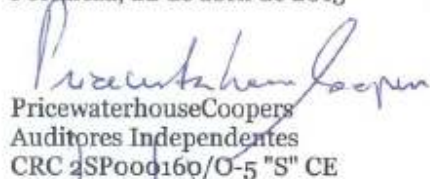 PricewaterhouseCoopers
PricewaterhouseCoopers
Auditores Independentes
CRC 2SP000160/O-5 "S" CE